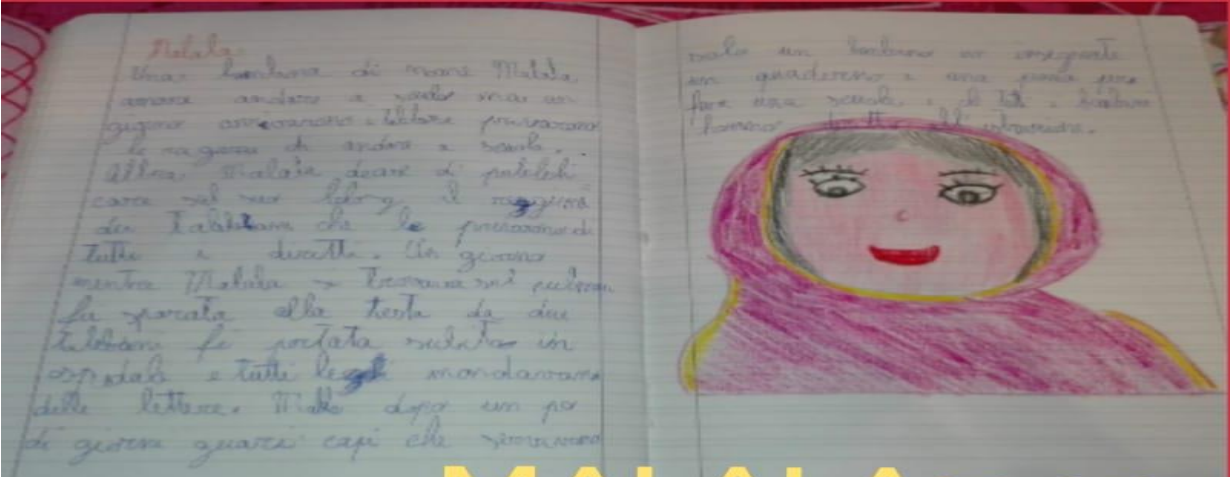 Malala
Una bambina di nome Malala
amava andare a scuola ma un
giorno arrivarono i privarono
le ragazze di andare a scuola.
Allora Malala decise di
care sul suo blog il
dei talebani che le privavano di
tutti i diritti. Un giorno
mentre Malala si trovava sul pulman
fu sparata alla testa da due
talebani fu portata subito in
ospedale e tutti le mandavano
delle lettere. dopo un po
di giorni guarì capì che servivano
solo un bambino un insegnante
un quaderno e una penna per
fare una scuola e i bambini
hanno diritto all'istruzione.
MALALA